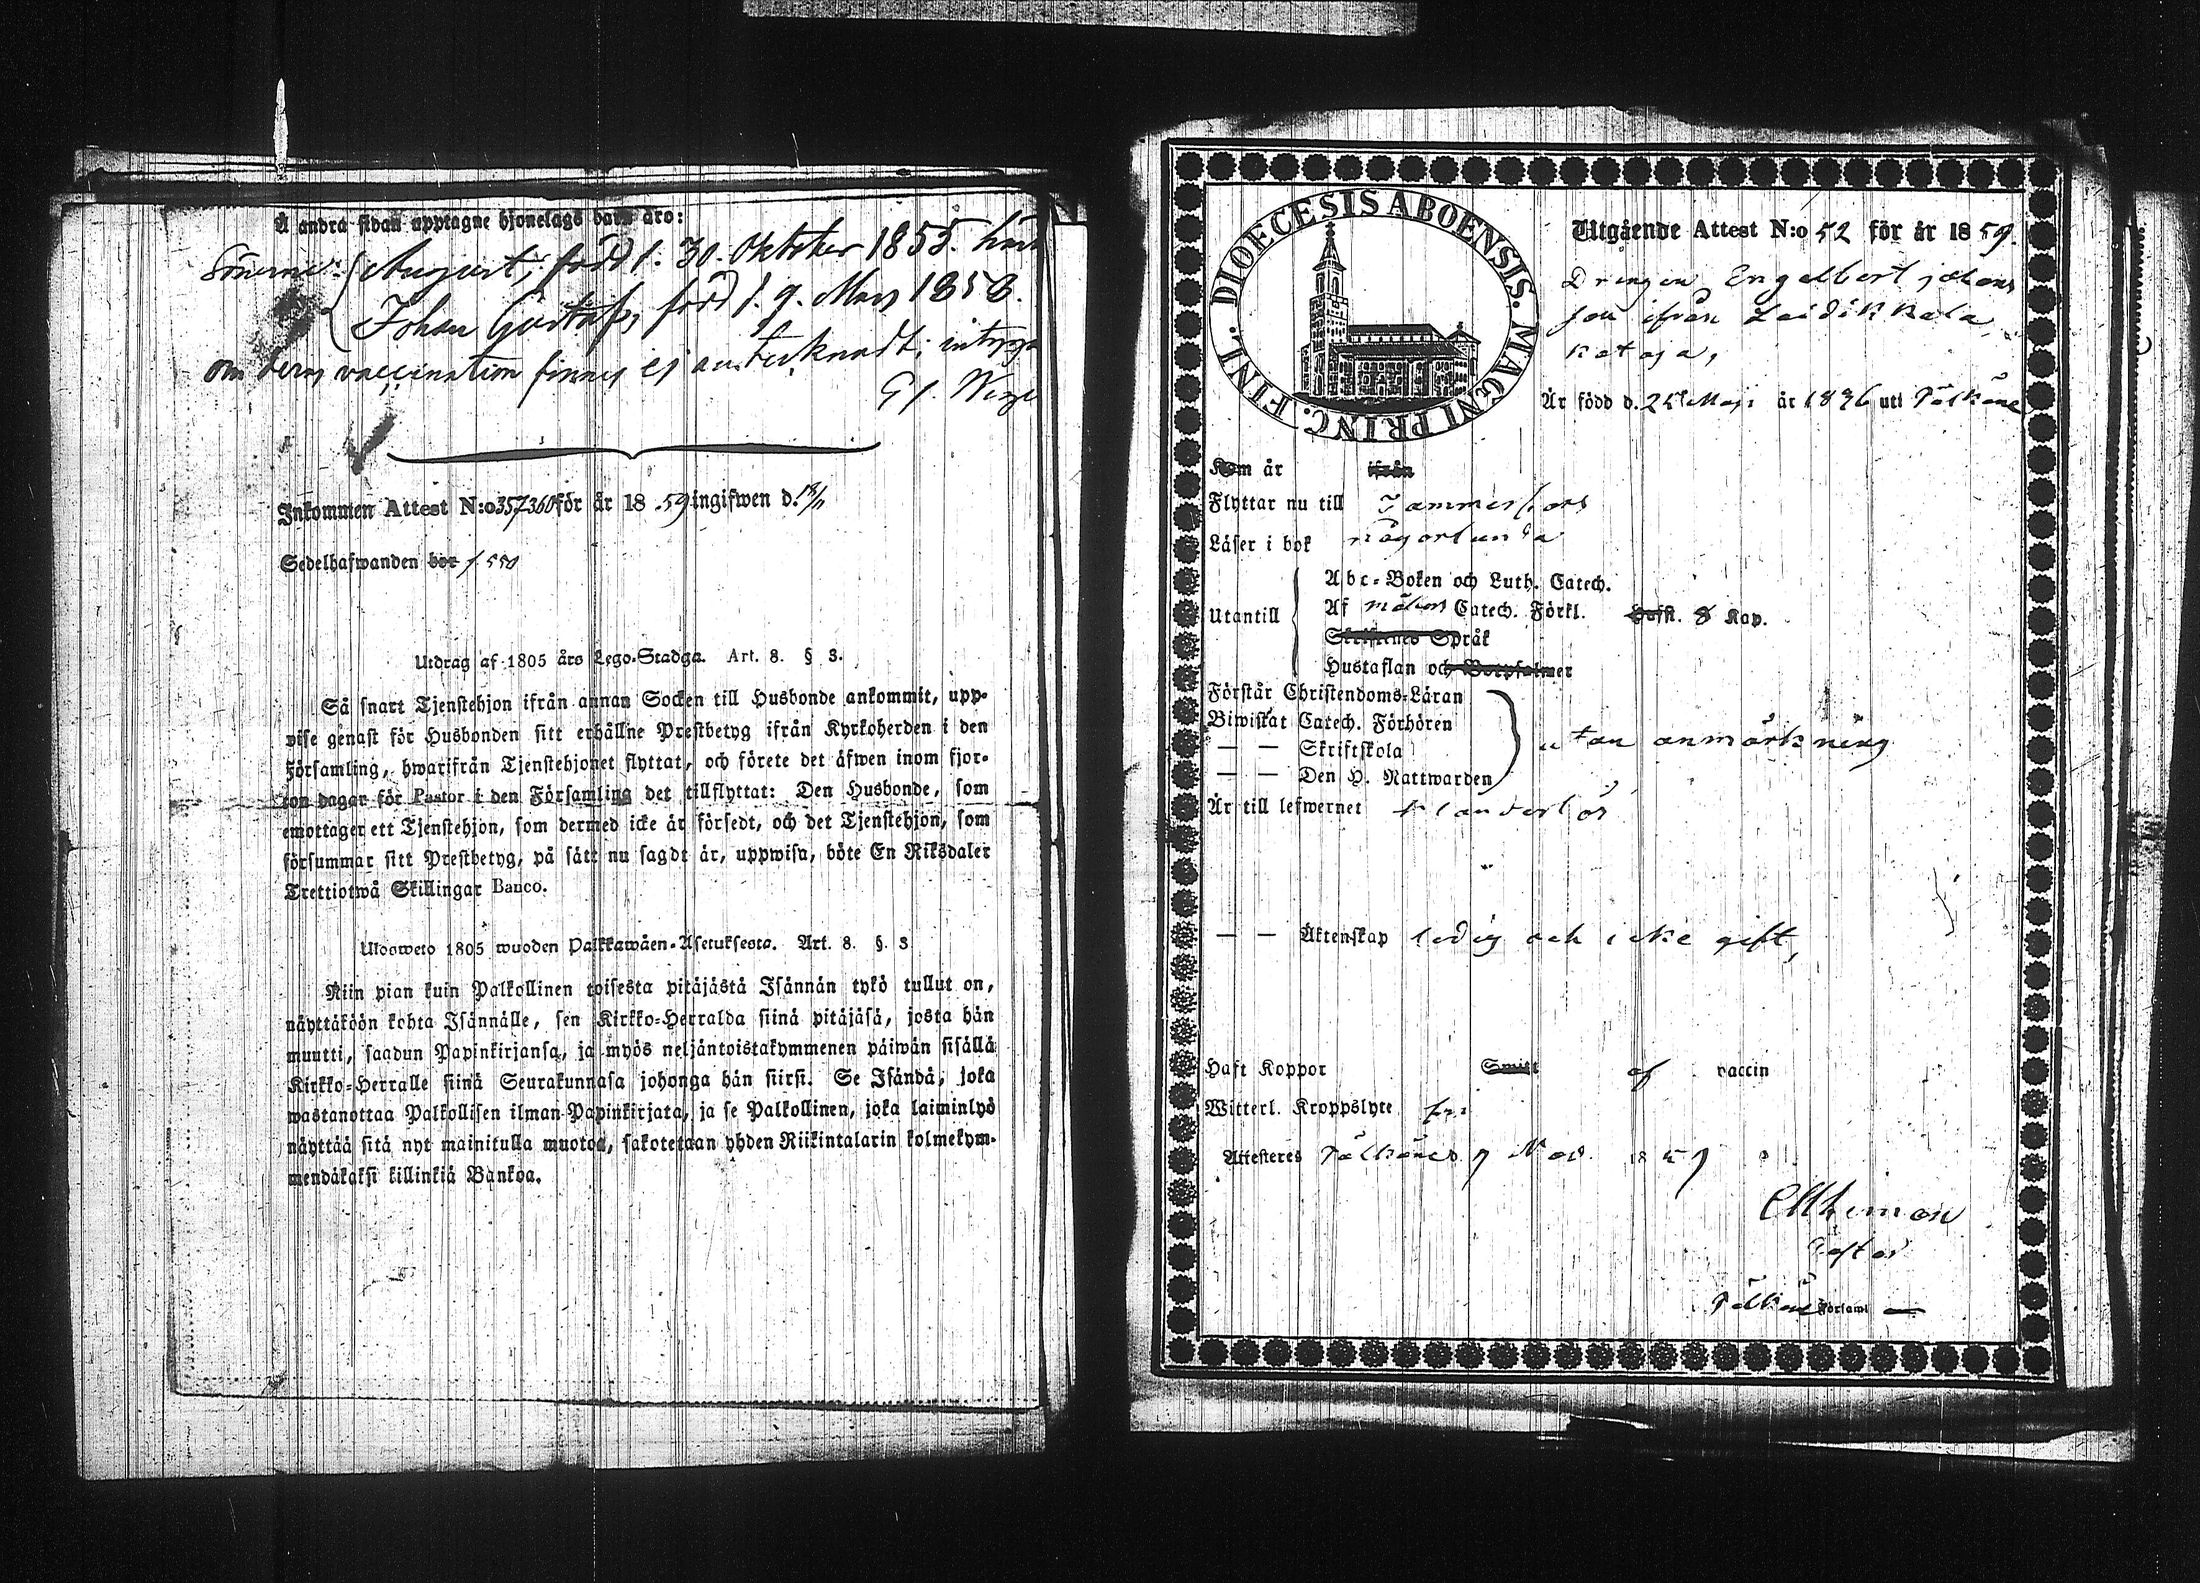 Å andra sidan upptagne hjonelags barn äro:
Sönerne: August, född d. 30. Oktober 1855.
Johan Gustaf, född d. 9. Mars 1858.
om deras vaccination finnes ej antecknadt; intygar
Inkommen Attest N:o 357-360 för år 1859 ingifwen d. 18/11
Sedelhafwanden bor f. 550
Utdrag af 1805 års Lego-Stadga. Art. 8. § 3.
Så snart Tjenstehjon ifrån annan Socken till Husbonde ankommit, upp-
vise genast för Husbonden sitt erhållne Prestbetyg ifrån Kyrkoherden i den
Församling, hwarifrån Tjenstehjonet flyttat, och förete det äfwen inom fjor-
ton dagar för Pastor i den Församling det tillflyttat: Den Husbonde, som
emottager ett Tjenstehjon, som dermed icke är försedt, och det Tjenstehjon, som
försummar sitt Prestbetyg, på sätt nu sagdt är, uppwisa, böte En Riksdaler
Trettiotwå Skillingar Banco.
Ulosweto 1805 wuoden Palkkawäen-Asetuksesta. Art. 8. §. 3
Niin pian kuin Palkollinen toisesta pitäjästä Isännän tykö tullut on,
näyttäköön kohta Isännälle, sen Kirkko-Herralda siinä pitäjäsä, josta hän
muutti, saadun Papinkirjansa, ja myös neljäntoistakymmenen päiwän sisällä
Kirkko-Herralle siinä Seurakunnasa johonga hän siirsi. Se Isändä, joka
wastanottaa Palkollisen ilman Papinkirjata, ja se Palkollinen, joka laiminlyö
näyttää sitä nyt mainitulla muotoa, sakotetaan yhden Riikintalarin kolmekym-
mendäkaksi killinkiä Bankoa.
DIOECESIS ABOENSIS. MAGNI PRINC. FINL.
Utgående Attest N:o 52 för år 1859.
Drengen Engelbert Johans
son ifrån Laidikkala
Kataja,
Är född d. 25 Maji år 1836 uti Pälkäne
Kom år ifrån
Flyttar nu till Tammerfors
Läser i bok någorlunda
Abc-Boken och Luth. Catech.
Utantill Af Catech. Förkl. Kap.
Skriftenes Språk
Hustaflan och Botpsalmer
Förstår Christendoms-Läran
Biwistat Catech. Förhören utan anmärkning
— — Skriftskola
— — Den H. Nattwarden
Är till lefwernet klanderlös
— — Äktenskap ledig och icke gift,
Haft Koppor Smitt af vaccin
Witterl. Kroppslyte fri
Attesteres Pälkäne d. 9 Nov. 1859
Pastor
Pälkäne Församl